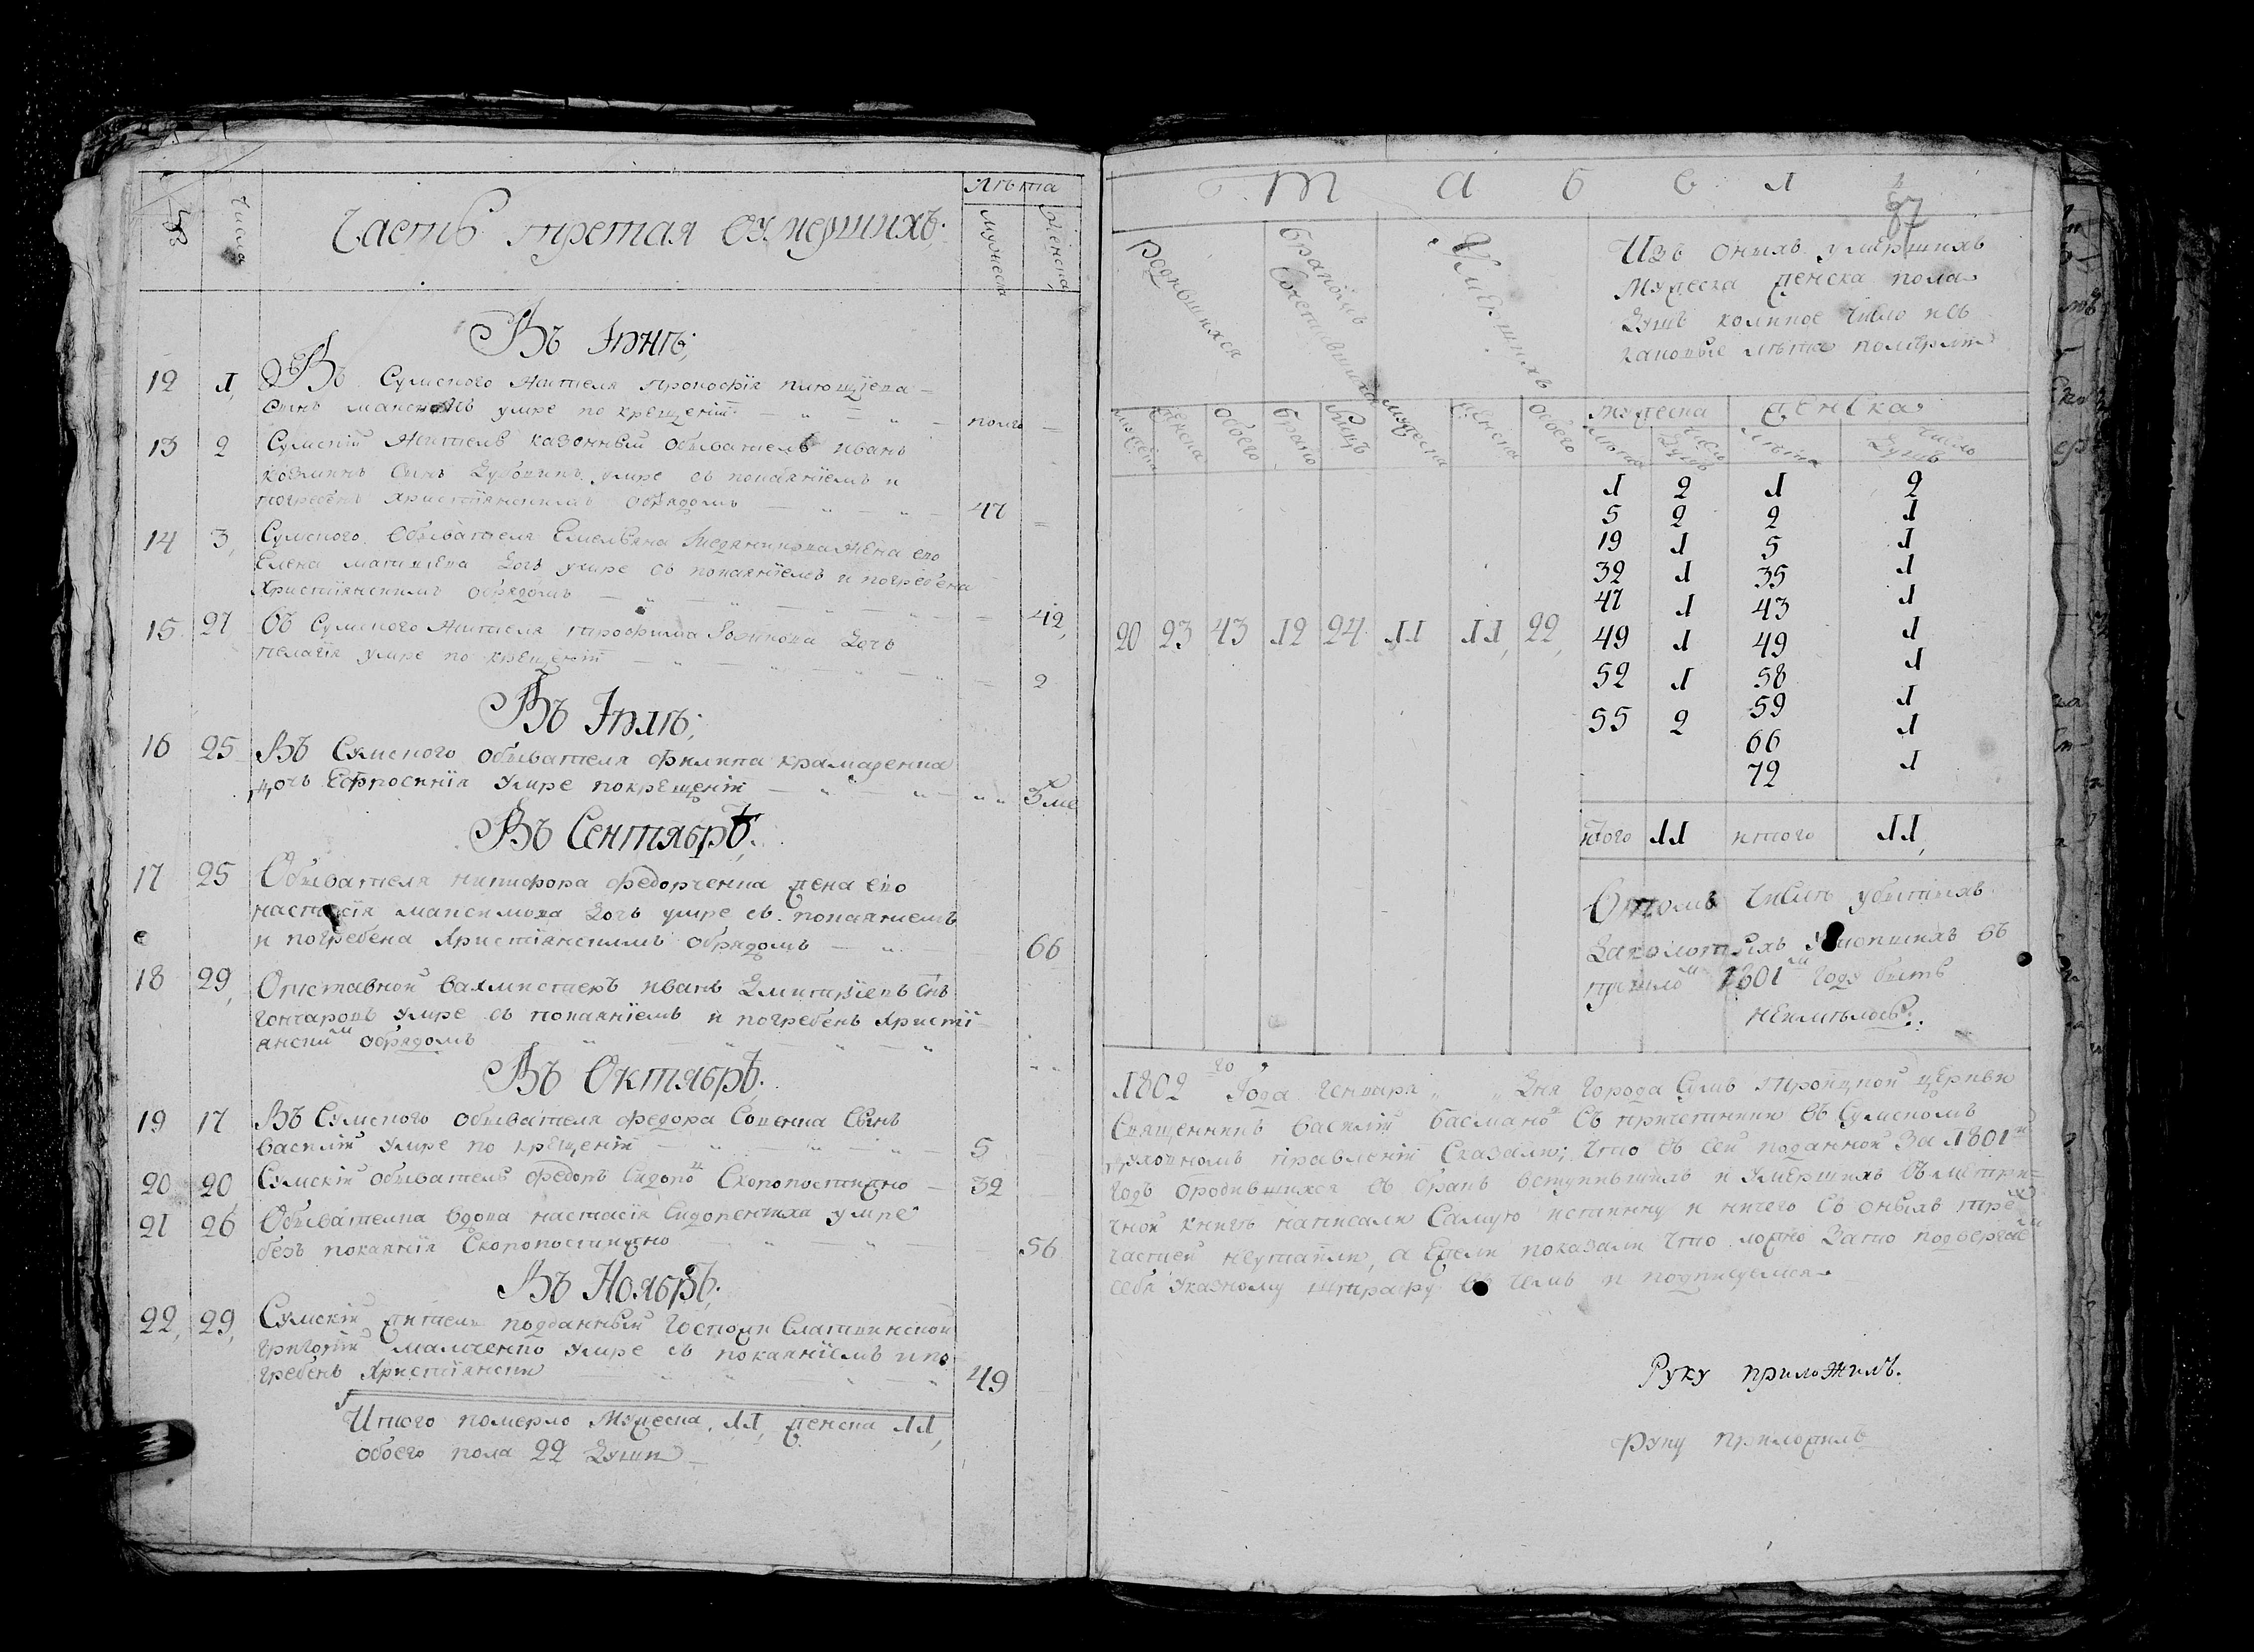 Часть третая оумершихъ.
Лѣта
Числа
Мужеска
Женска
Въ Іюнѣ;
12 1, Въ Сумского жителя Прокофія
сынъ умре по крещеніи
13 2 Сумскій житель казенный обыватель Иванъ
Козминъ сынъ умре съ покаяніемъ и
погребенъ христіянскимъ обрядомъ 47
14 3, Сумского обывателя Емельяна жена его
Елена дочь умре съ покаяніемъ и погребена
христіянскимъ обрядомъ 42,
15 27 Въ Сумского жителя Трофима дочь
Пелагія умре по крещеніи 2
Въ Іюлѣ;
16 25 Въ Сумского обывателя Филипа Крамаренка
дочь Ефросинія умре по крещеніи 3 ме
Въ Сентябрѣ;
17 25 Обывателя Никифора Федорченка жена его
Настасія Максимова дочь умре съ покаяниемъ
и погребена христіянскимъ обрядомъ 66
18 29, Отставной вахмистеръ Иванъ Дмитріевъ снъ
Гончаровъ умре съ покаяніемъ и погребенъ христі
анскимъ обрядомъ
Въ Октябрѣ;
19 17 Въ Сумского обывателя Федора сынъ
Василій умре по крещеніи 5
20 20 Сумскій обыватель Федоръ Сидоровъ скоропостижно 32
21 26 Обывателка вдова Настасія Сидоренкиха умре
безъ покаянія скоропостижно 56
Въ Ноябрѣ;
22, 29, Сумскій житель подданный госпожи
Григорій умре съ покаяніемъ и по
гребенъ христіянски 49
Итого померло мужеска 11, женска 11,
обоего пола 22 души
Т а б е л
87
Родившихся
Бракомъ сочетавшихся
Умершихъ
Изъ оныхъ умершихъ
мужеска женска пола
душъ коликое число и съ
каковые лѣта померли
женска обоего бракъ лицъ мужеска женска обоего
мужеска женска
лѣта число душъ лѣта число душъ
20 23 43 12 24 11 11, 22,
1 2 1 2
5 2 2 1
19 1 5 1
32 1 35 1
47 1 43 1
49 1 49 1
52 1 58 1
55 2 59 1
66 1
72 1
итого 11 итого 11,
Въ томъ числѣ убитыхъ
въ
1801м году быть
неимѣлось.
1802го года генваря „ „ дня города Сумъ Троицкой церкви
священникъ Василій Басмановъ съ причетники въ Сумскомъ
духовномъ правленіи сказали; что въ сей поданной за 1801й
годъ о родившихся въ бракъ вступившихъ и умершихъ въ метри=
чной книгѣ написали самую истинну и ничего съ оныхъ трехъ
частей неутаили, а ежели показали что ложно за то подвергаемъ
себя указному штрафу въ чемъ и подписуемся
Руку приложилъ.
Руку приложилъ